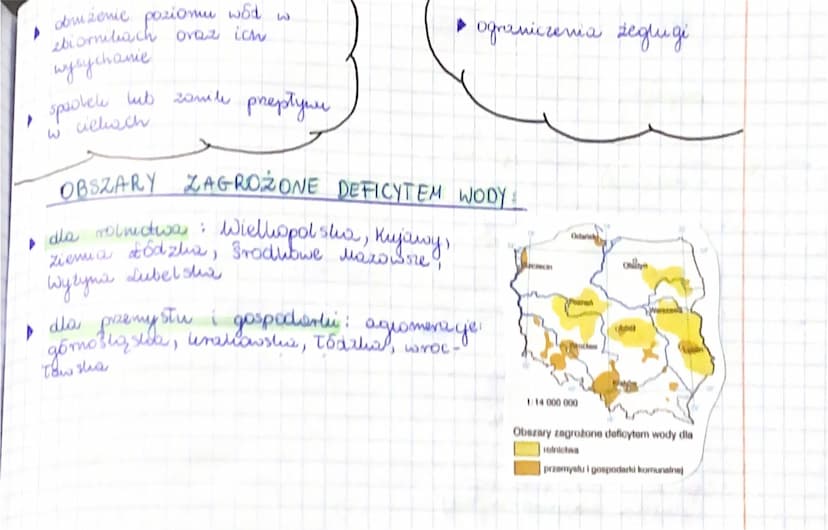 obniżenie poziomu wód w
zbiornikach oraz ich
wysychanie
spadek lub zanik przepływu
w ciekach
ograniczenia żeglugi
OBSZARY ZAGROŻONE DEFICYTEM WODY:
dla rolnictwa: Wielkopolska, Kujawy,
ziemia Łódzka, Środkowe Mazowsze,
Wyżyna Lubelska
dla przemysłu i gospodarki: aglomeracje:
górnośląska, krakowska, łódzka, wroc-
ławska
Gdańsk
Szczecin
Olsztyn
Poznań
Warszawa
Łódź
Wrocław
Lublin
Kraków
1:14 000 000
Obszary zagrożone deficytem wody dla
rolnictwa
przemysłu i gospodarki komunalnej